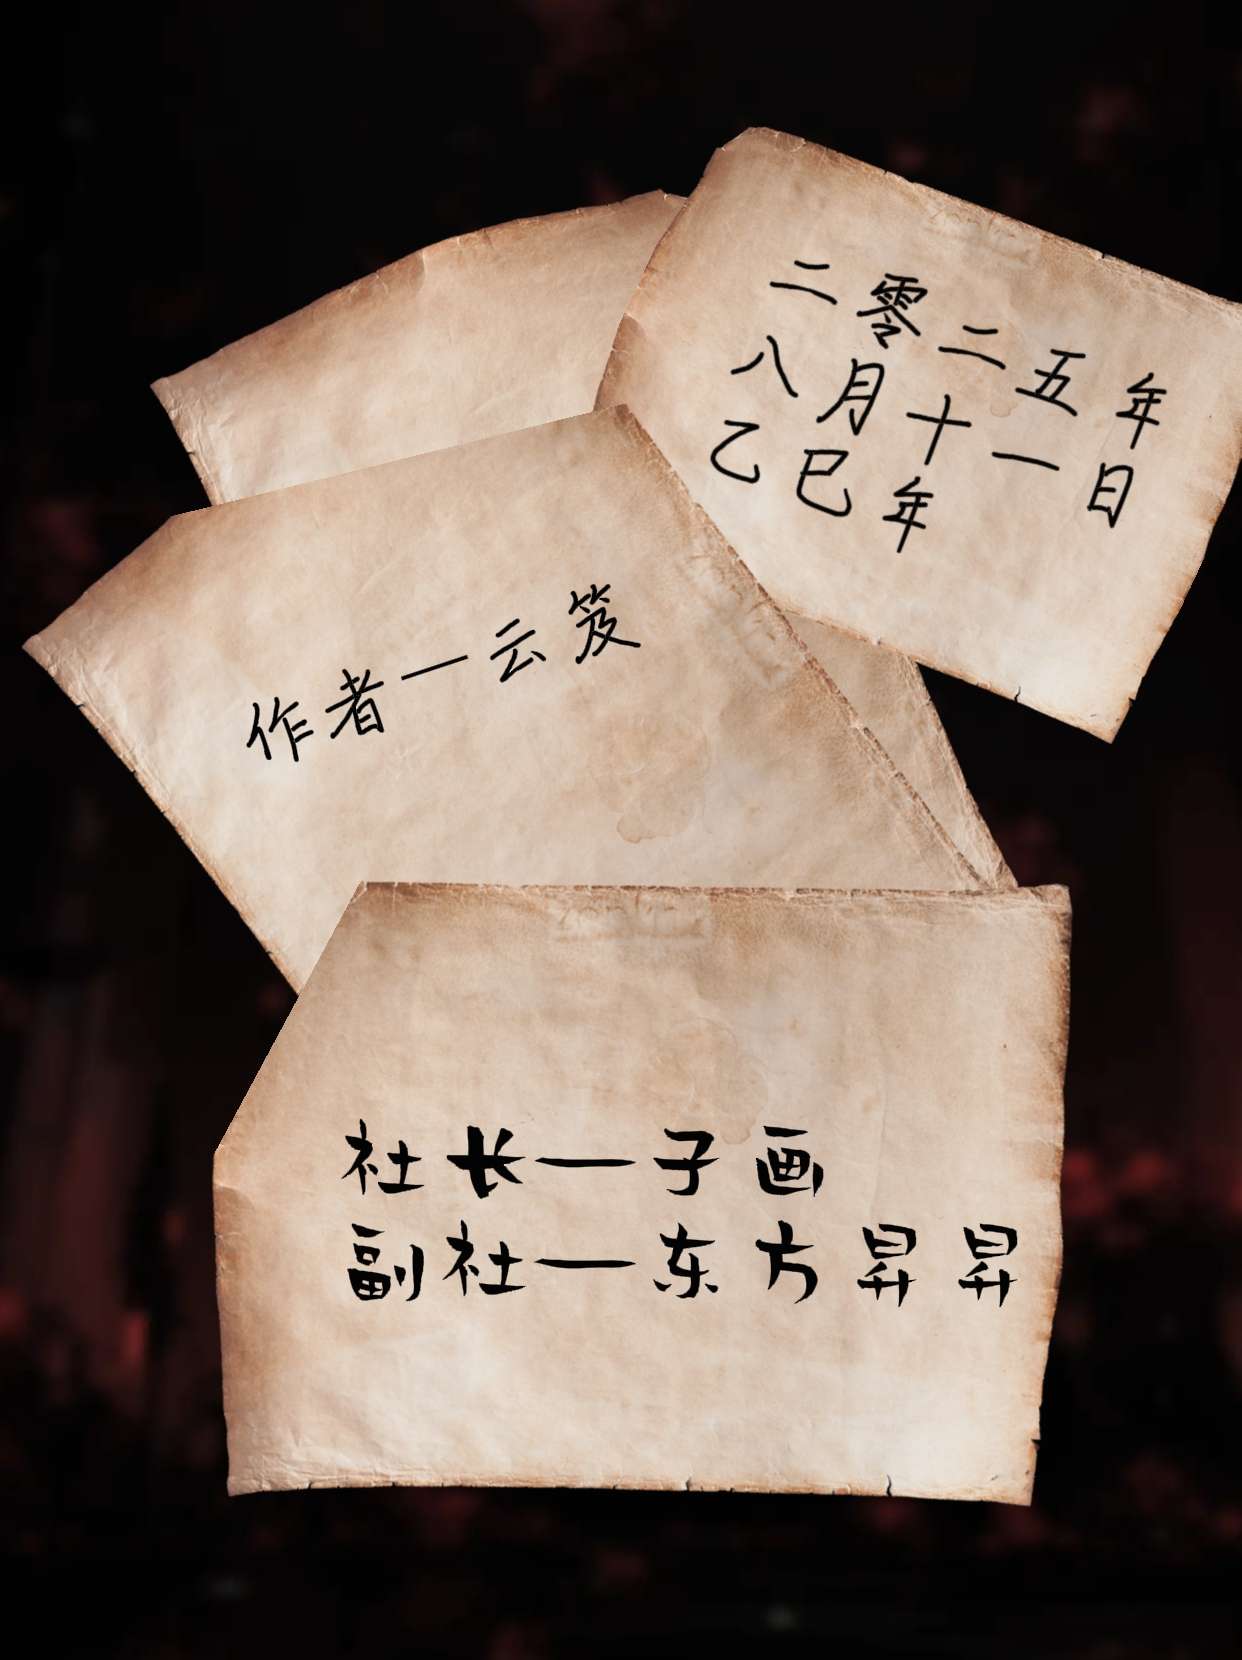 二零二五年
八月十一日
乙巳年
作者一云笈
社长一子画
副社一东方昇昇